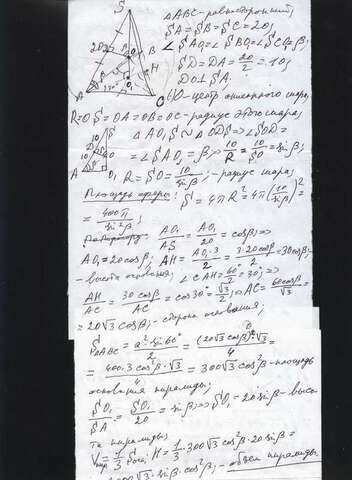 S
20
B
H
A
C
O₁
ΔABC - равносторонний;
SA = SB = SC = 20;
∠SAO₁ = ∠SBO₁ = ∠SCO₁ = β;
SD = DA = 20/2 = 10;
DO ⊥ SA.
O - центр описанного шара,
R = OS = OA = OB = OC - радиус этого шара;
ΔAO₁S ~ ΔODS ⇒ ∠SOD =
= ∠SAO₁ = β; ⇒ 10/R = 10/SO = sin β;
R = SO = 10/sin β; - радиус шара;
10
D
10
S
O
A
O₁
Площадь сферы: S = 4πR² = 4π(10/sin β)² =
= 400π/sin²β;
AO₁/AS = AO₁/20 = cos β; ⇒
AO₁ = 20cos β; AH = AO₁·3/2 = 3·20cos β/2 = 30cos β; -
- высота основания; ∠CAH = 60°/2 = 30°; ⇒
AH/AC = 30cos β/AC = cos 30° = √3/2; ⇒ AC = 60cos β/√3 =
= 20√3 cos β; - сторона основания;
S_ΔABC = a²·sin 60°/2 = (20√3 cos β)²·√3/4 =
= 400·3cos²β·√3/4 = 300√3 cos²β - площадь
основания пирамиды;
SO₁/SA = SO₁/20 = sin β; ⇒ SO₁ = 20 sin β - высо-
та пирамиды;
V пир = 1/3 S осн · H = 1/3 · 300√3 cos²β · 20 sin β =
√3 sin β · cos²β; - объем пирамиды.